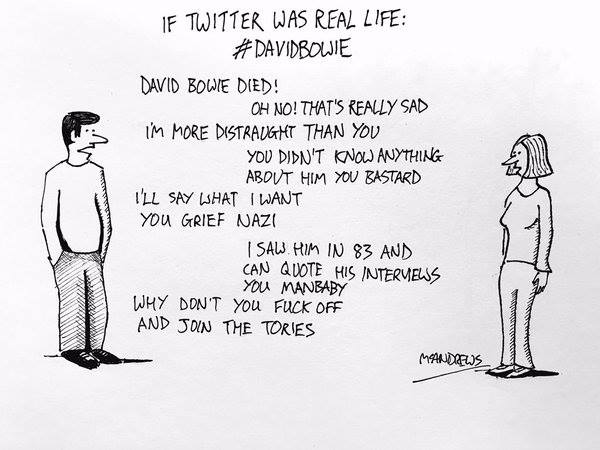 IF TWITTER WAS REAL LIFE:
#DAVIDBOWIE
DAVID BOWIE DIED!
OH NO! THAT'S REALLY SAD
I'M MORE DISTRAUGHT THAN YOU
YOU DIDN'T KNOW ANYTHING
ABOUT HIM YOU BASTARD
I'LL SAY WHAT I WANT
YOU GRIEF NAZI
I SAW HIM IN 83 AND
CAN QUOTE HIS INTERVIEWS
YOU MANBABY
WHY DON'T YOU FUCK OFF
AND JOIN THE TORIES
McANDREWS